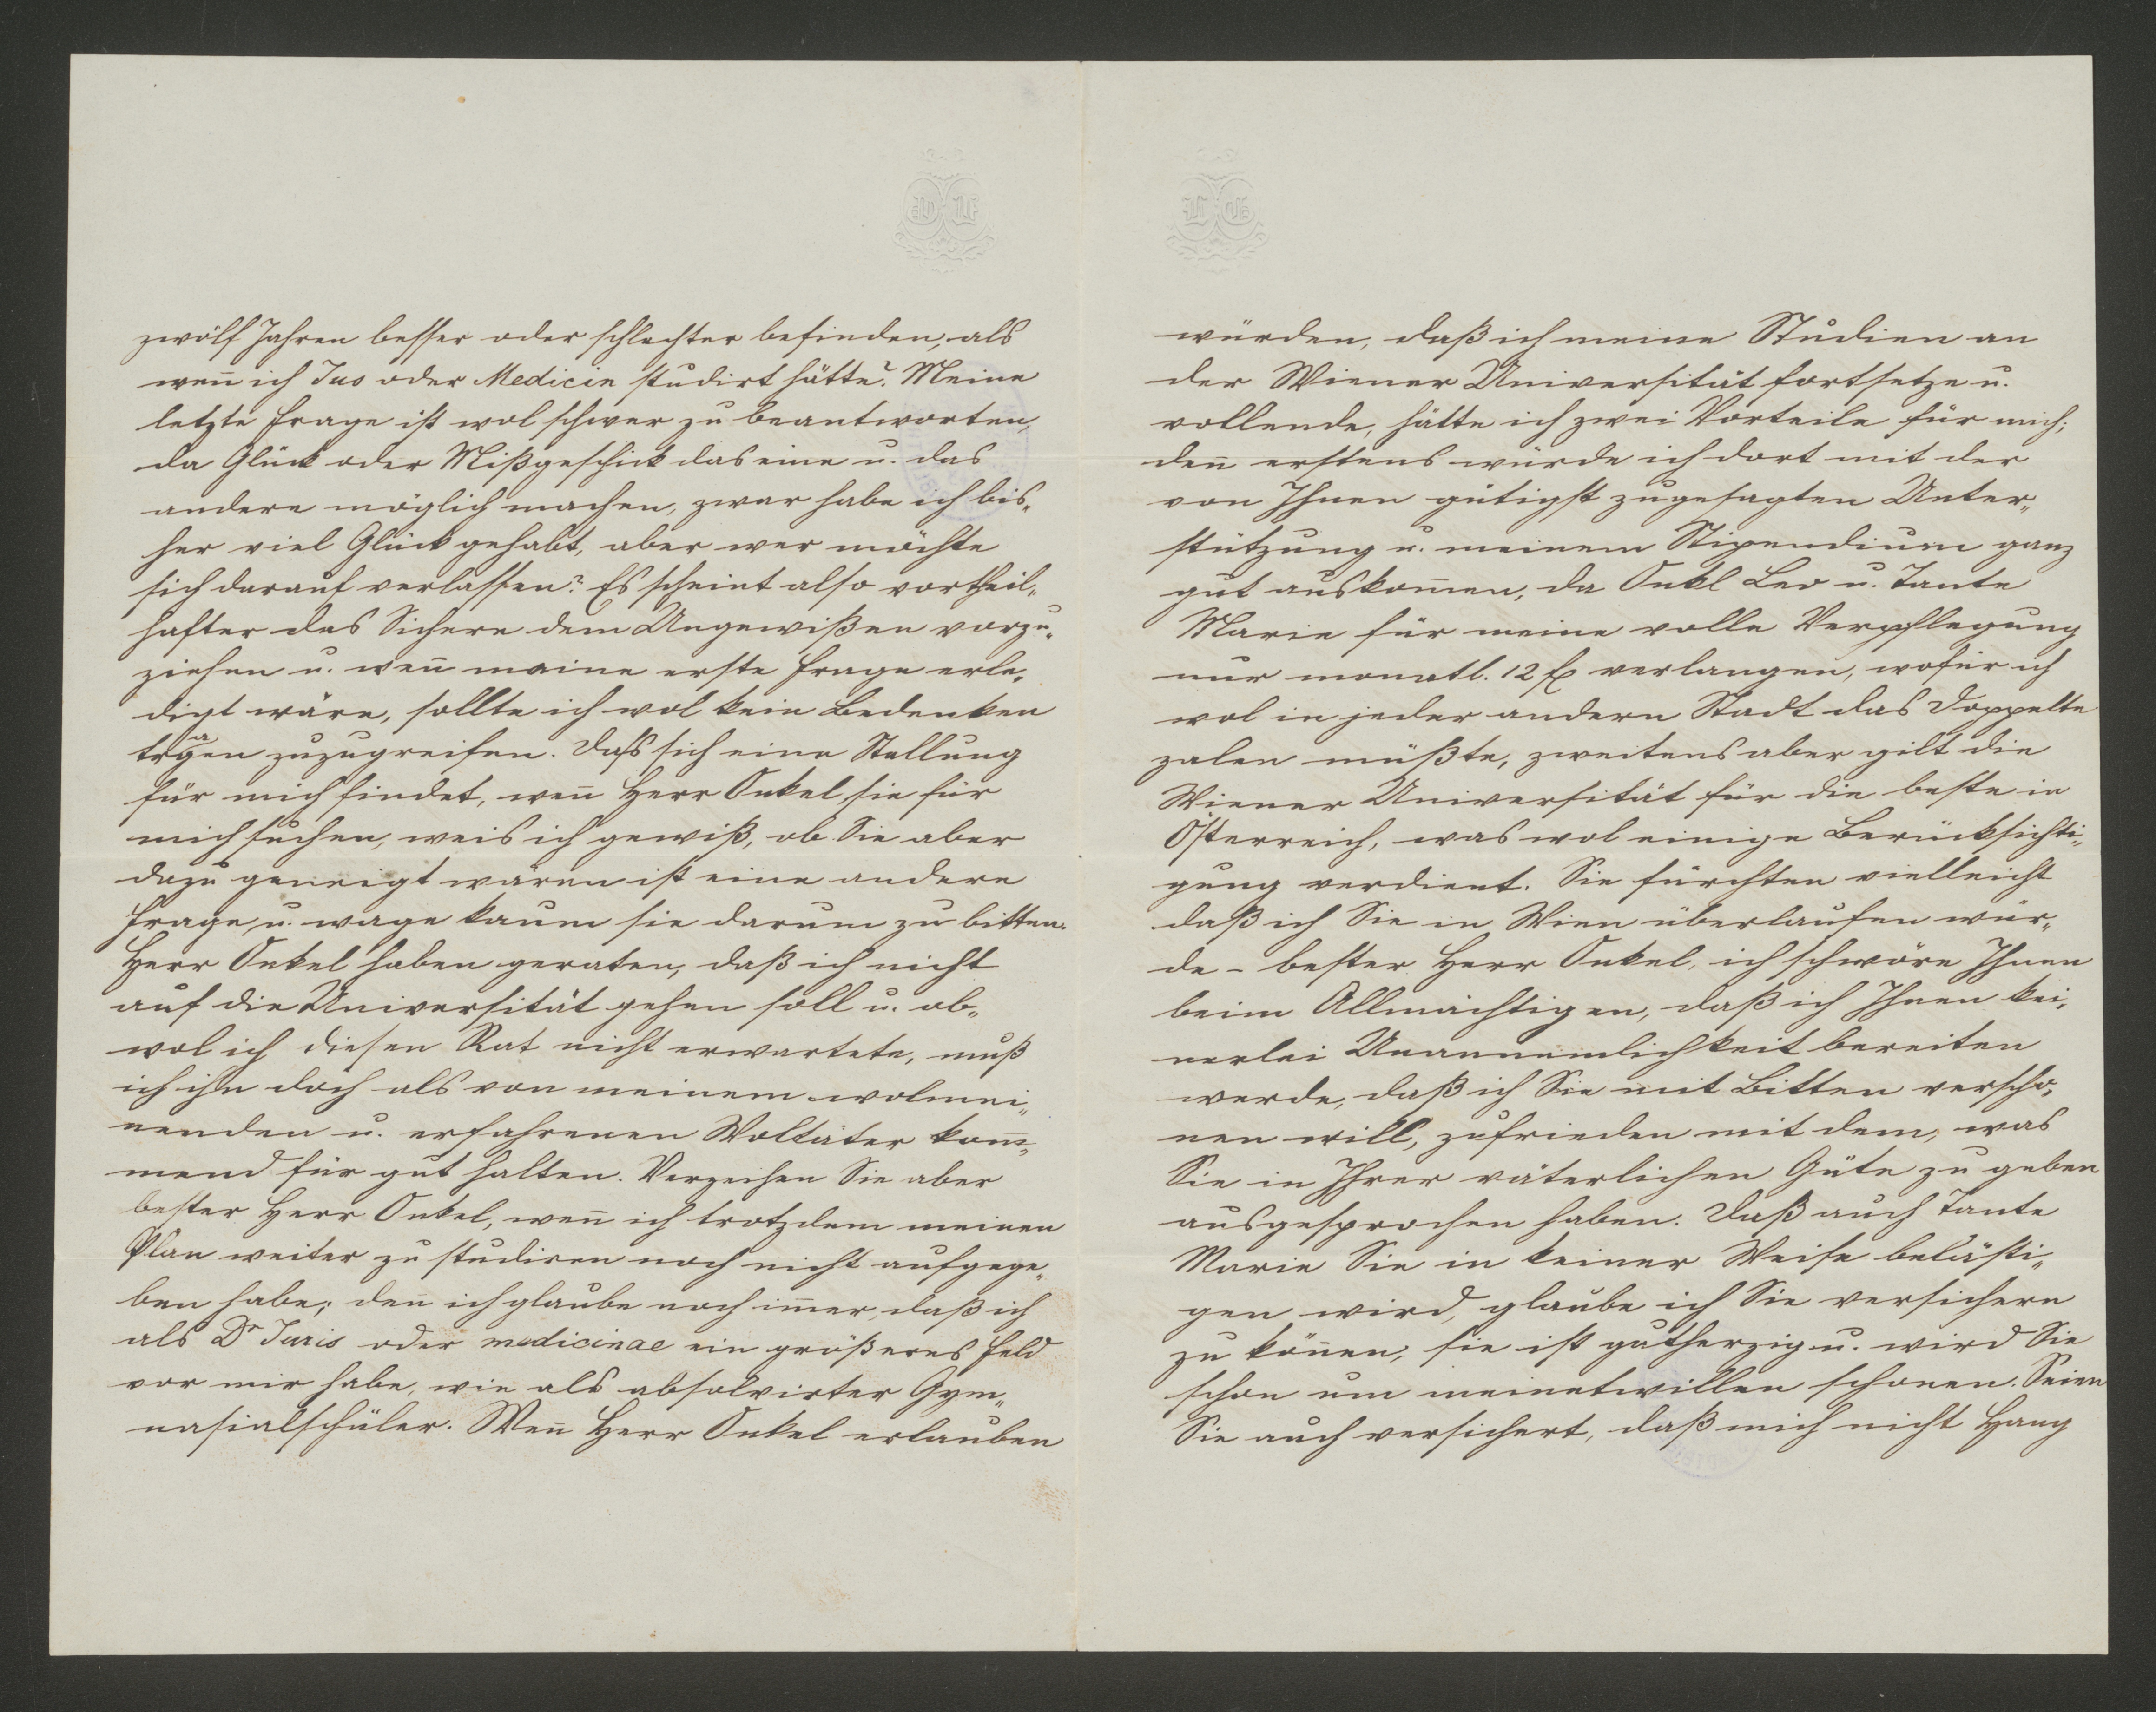 zwölf Jahren besser oder schlechter befinden, als
weñ ich Jus oder Medicin studirt hätte? Meine
letzte Frage ist wol schwer zu beantworten,
da Glück oder Mißgeschick das eine u. das
andere möglich machen, zwar habe ich bis„
her viel Glück gehabt, aber wer möchte
sich darauf verlassen? Es scheint also vortheil„
hafter das Sichere dem Ungewißen vorzu„
ziehen u. weñ meine erste Frage erle„
digt wäre, sollte ich wol kein Bedenken
tragen zuzugreifen. Dass sich eine Stellung
für mich findet, weñ Herr Onkel sie für
mich suchen, weis ich gewiß, ob Sie aber
dazu geneigt wären ist eine andere
Frage, u. wage kaum sie darum zu bitten.
Herr Onkel haben geraten, daß ich nicht
auf die Universität gehen soll u. ob„
wol ich diesen Rat nicht erwartete, muß
ich ihn doch als von meinem wolmei„
nenden u. erfahrenen Woltäter kom̄„
mend für gut halten. Verzeihen Sie aber
bester Herr Onkel, weñ ich trotzdem meinen
Plan weiter zu studiren noch nicht aufgege„
ben habe; deñ ich glaube noch im̄er, daß ich
als Dr Juris oder medicinae ein größeres Feld
vor mir habe, wie als absolvirter Gym„
nasialschüler. Weñ Herr Onkel erlauben
würden, daß ich meine Studien an
der Wiener Universität fortsetze u.
vollende, hätte ich zwei Vorteile für mich;
deñ erstens würde ich dort mit der
von Ihnen gütigst zugesagten Unter„
stützung u. meinem Stipendium ganz
gut auskom̄en, da Onkl Leo u. Tante
Marie für meine volle Verpflegung
nur monatl. 12 fl verlangen, wofür ich
wol in jeder andern Stadt das Doppelte
zalen müßte, zweitens aber gilt die
Wiener Universität für die beste in
Österreich, was wol einige Berücksichti„
gung verdient. Sie fürchten vielleicht
daß ich Sie in Wien überlaufen wür„
de – bester Herr Onkel, ich schwöre Ihnen
beim Allmächtigen, daß ich Ihnen kei„
nerlei Unannemlichkeit bereiten
werde, daß ich Sie mit Bitten verscho„
nen will, zufrieden mit dem, was
Sie in Ihrer väterlichen Güte zu geben
ausgesprochen haben. Daß auch Tante
Marie Sie in keiner Weise belästi„
gen wird, glaube ich Sie versichern
zu köñen, sie ist gutherzig u. wird Sie
schon um meinetwillen schonen. Seien
Sie auch versichert, daß mich nicht Hang